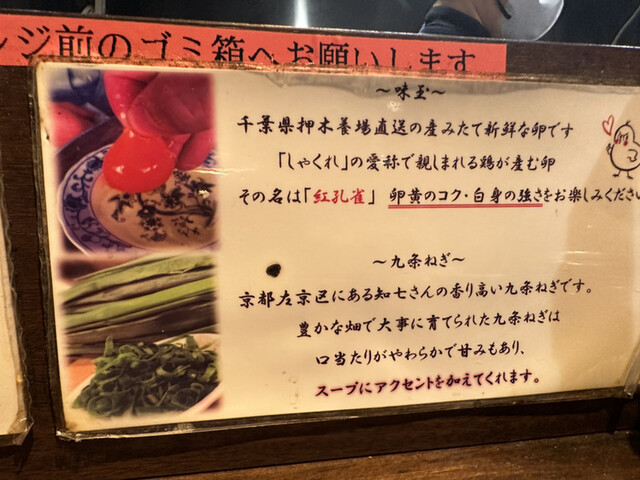 レジ前のゴミ箱へお願いします
～味玉～
千葉県押木養場直送の産みたて新鮮な卵です
「しゃくれ」の愛称で親しまれる鶏が産む卵
その名は「紅孔雀」 卵黄のコク・白身の強さをお楽しみください
～九条ねぎ～
京都左京区にある知七さんの香り高い九条ねぎです。
豊かな畑で大事に育てられた九条ねぎは
口当たりがやわらかで甘みもあり、
スープにアクセントを加えてくれます。